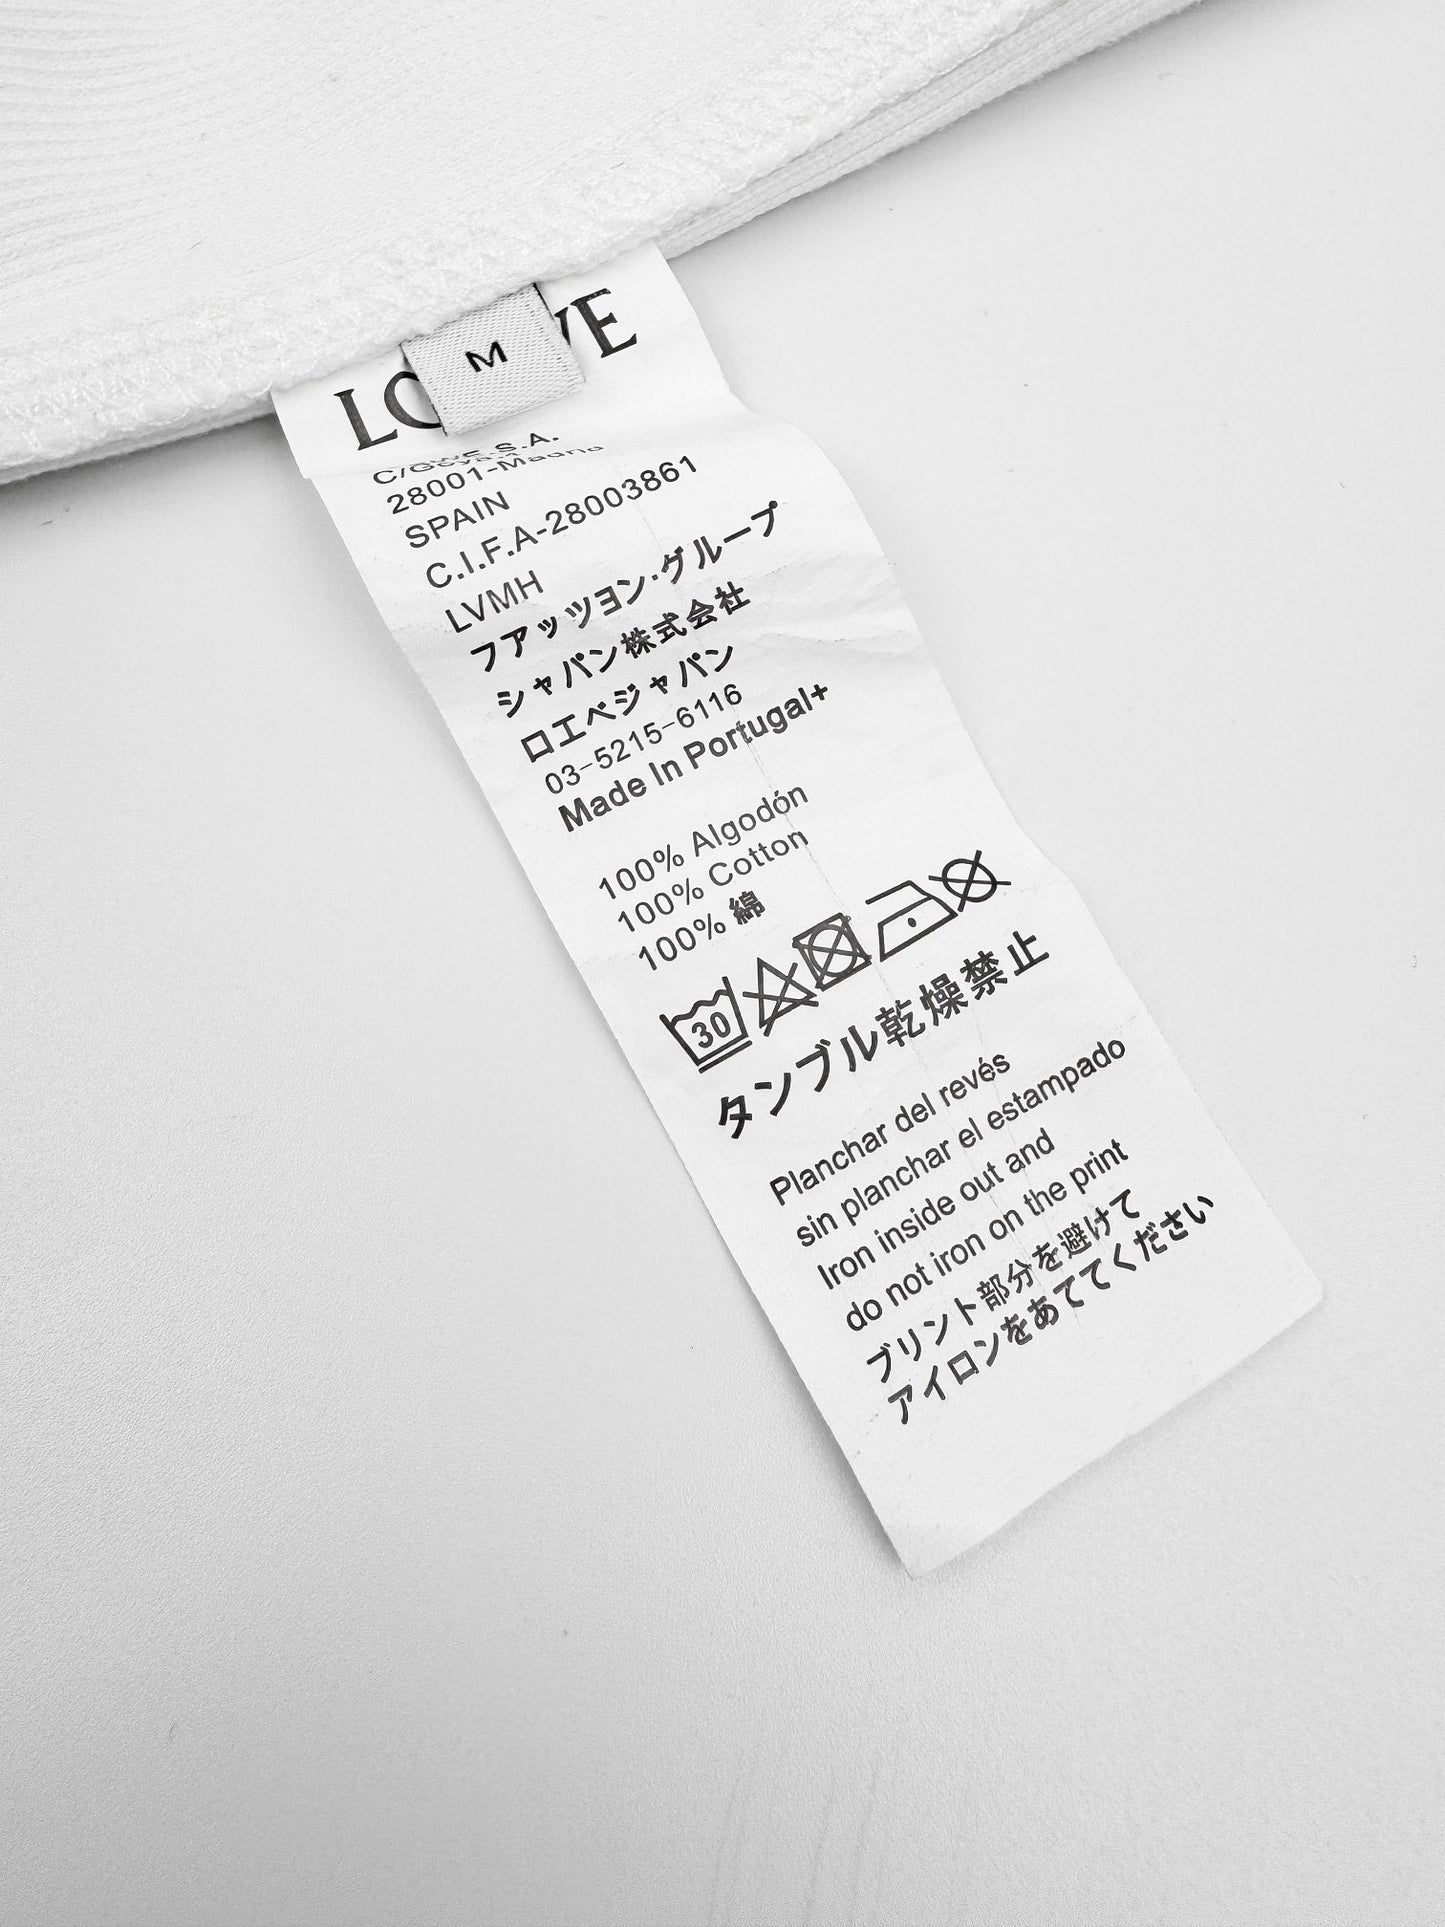 M
C/Goya.4
28001-Madrid
SPAIN
C.I.F.A-28003861
LVMH
フアッツヨン·グループ
シャパン株式会社
ロエベジャパン
03-5215-6116
Made In Portugal+
100% Algodón
100% Cotton
100% 綿
30
タンブル乾燥禁止
Planchar del revés
sin planchar el estampado
Iron inside out and
do not iron on the print
プリント部分を避けて
アイロンをあててください